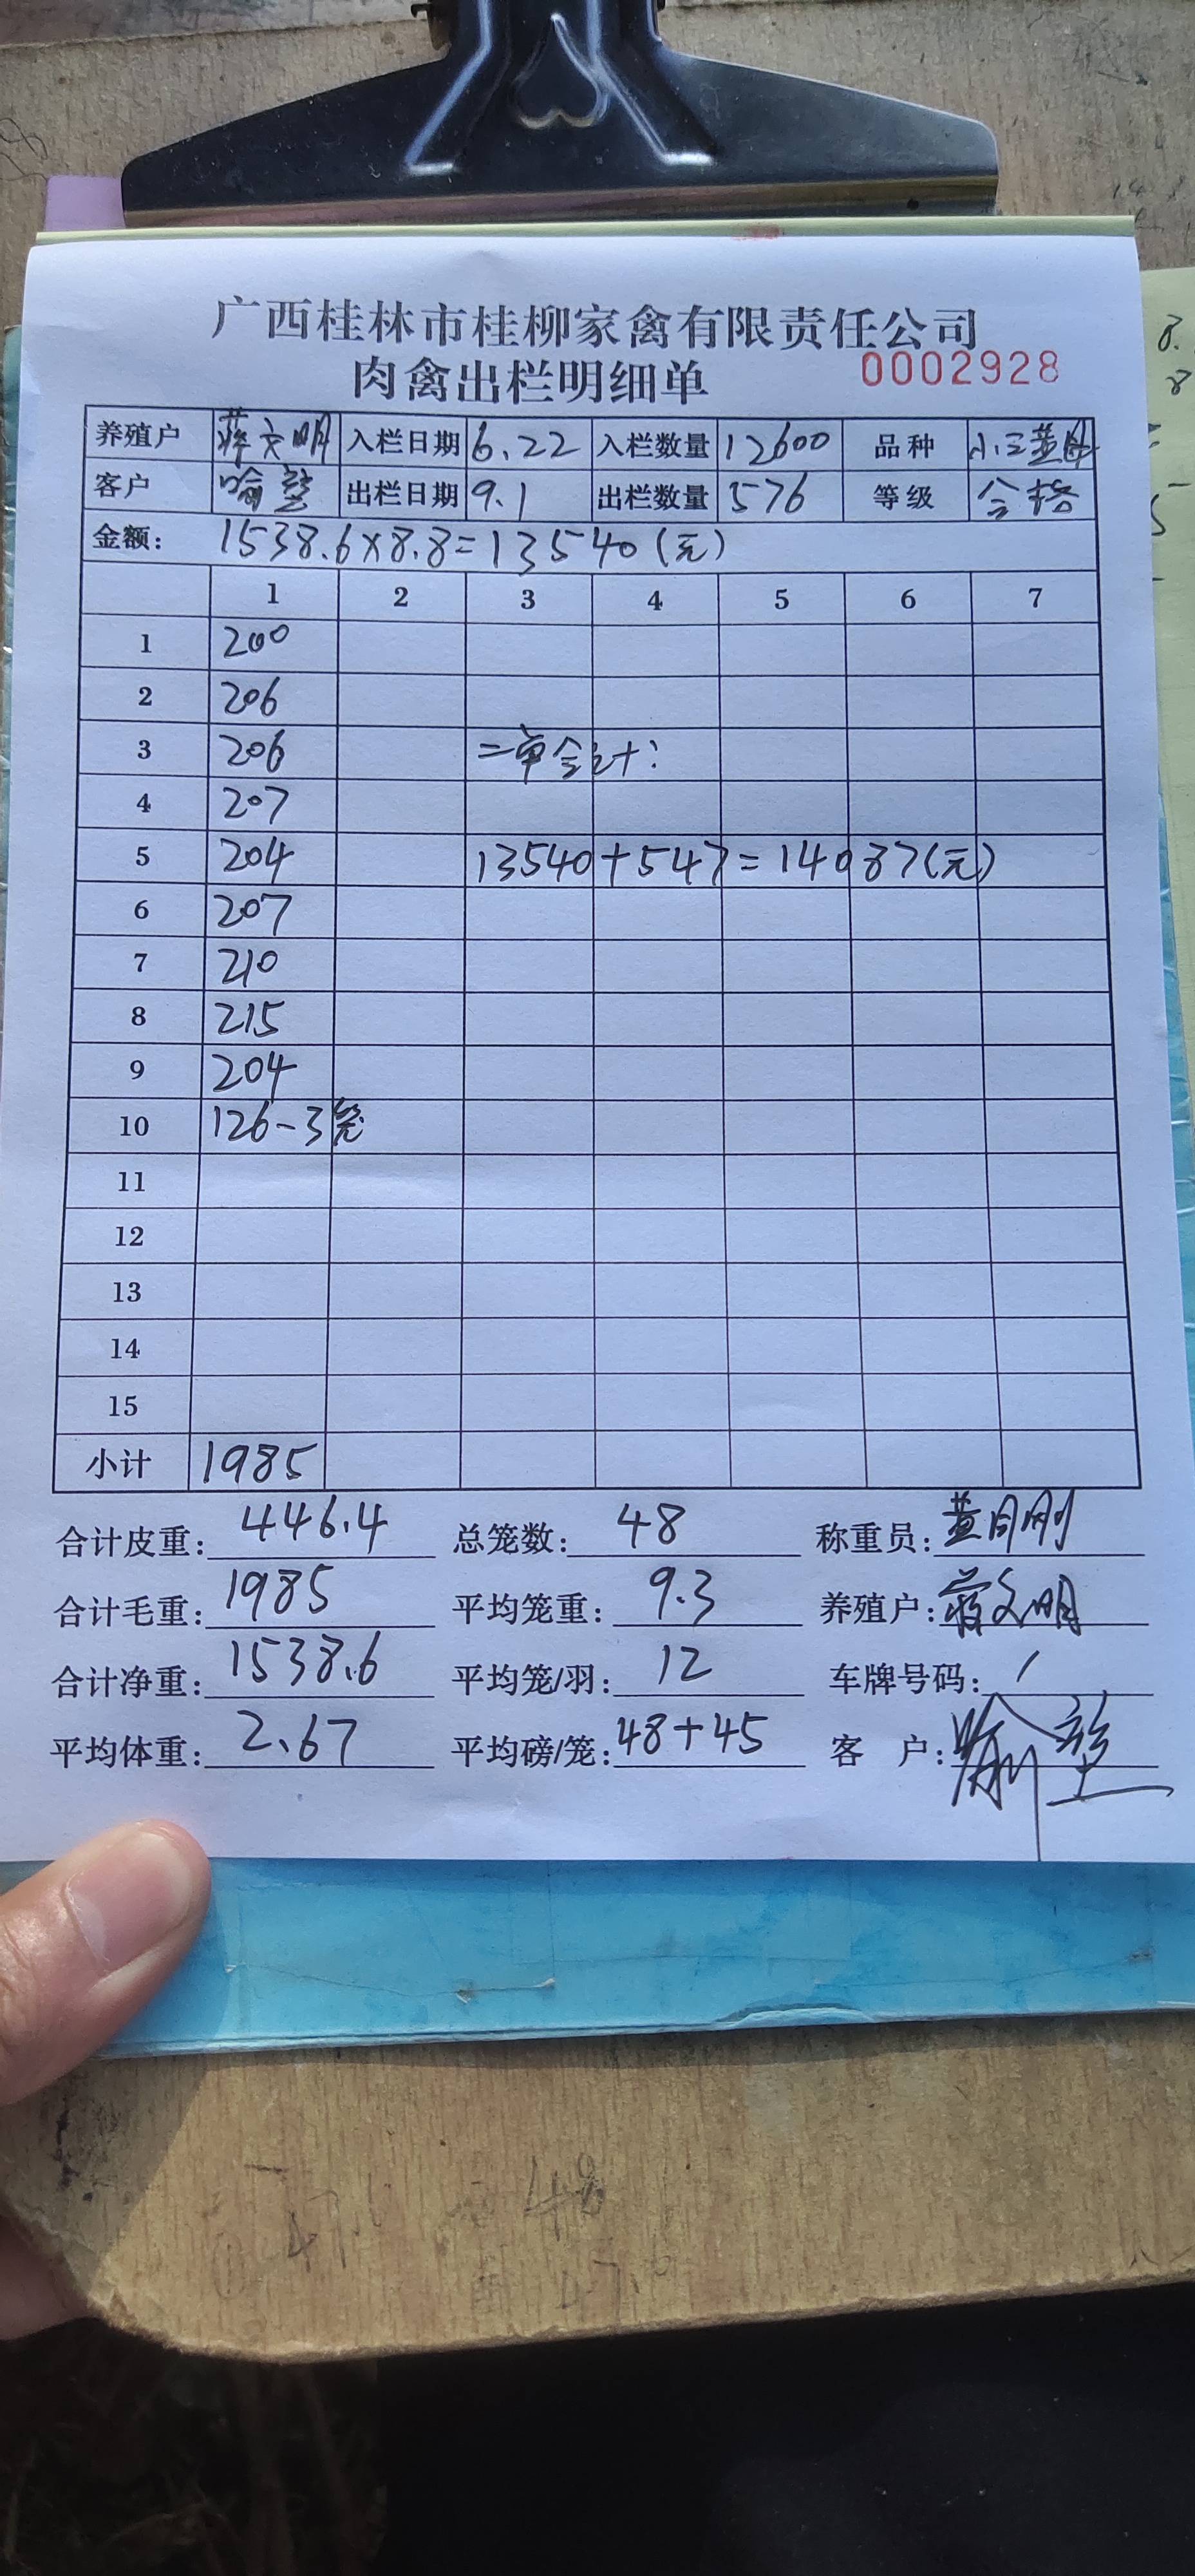 广西桂林市桂柳家禽有限责任公司
肉禽出栏明细单 0002928
养殖户 蒋文明 入栏日期 6.22 入栏数量 12600 品种 小三黄
客户 喻 出栏日期 9.1 出栏数量 576 等级 合格
金额: 1538.6×8.8=13540(元)
1 2 3 4 5 6 7
1 200
2 206
3 206 二单合计:
4 207
5 204 13540+547=14087(元)
6 207
7 210
8 215
9 204
10 126-3笼
11
12
13
14
15
小计 1985
合计皮重: 446.4 总笼数: 48 称重员: 黄月刚
合计毛重: 1985 平均笼重: 9.3 养殖户: 蒋文明
合计净重: 1538.6 平均笼/羽: 12 车牌号码: /
平均体重: 2.67 平均磅/笼: 48+45 客 户: 喻